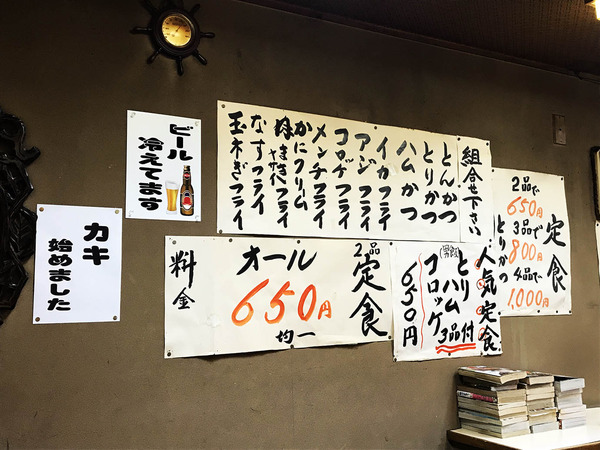 組合せ下さい
とんかつ
とりかつ
ハムかつ
イカフライ
アジフライ
コロッケフライ
メンチフライ
かにクリーム
なすフライ
玉ネギフライ
定食
2品で
650円
3品で
800円
4品で
1,000円
人気定食
とりかつ
とりハム
コロッケ
3品付
650円
2品定食
オール
650円
均一
料金
ビール
冷えてます
カキ
始めました